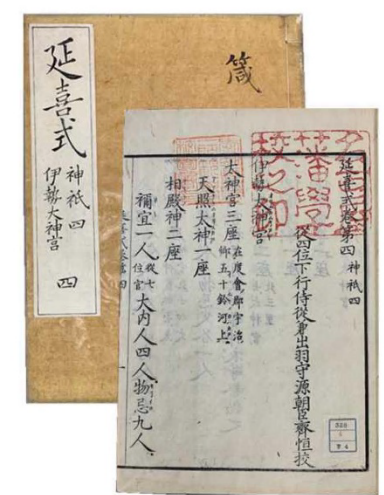 延喜式 神祇四 四
伊勢大神宮
箴
延喜式卷第四 神祇四
從四位下行侍從兼出羽守源朝臣齊恒挍
伊勢太神宮
太神宮三座 在度會郡宇治鄉五十鈴河上
天照太神一座
相殿神二座
禰宜一人 從七位官 大内人四人物忌九人